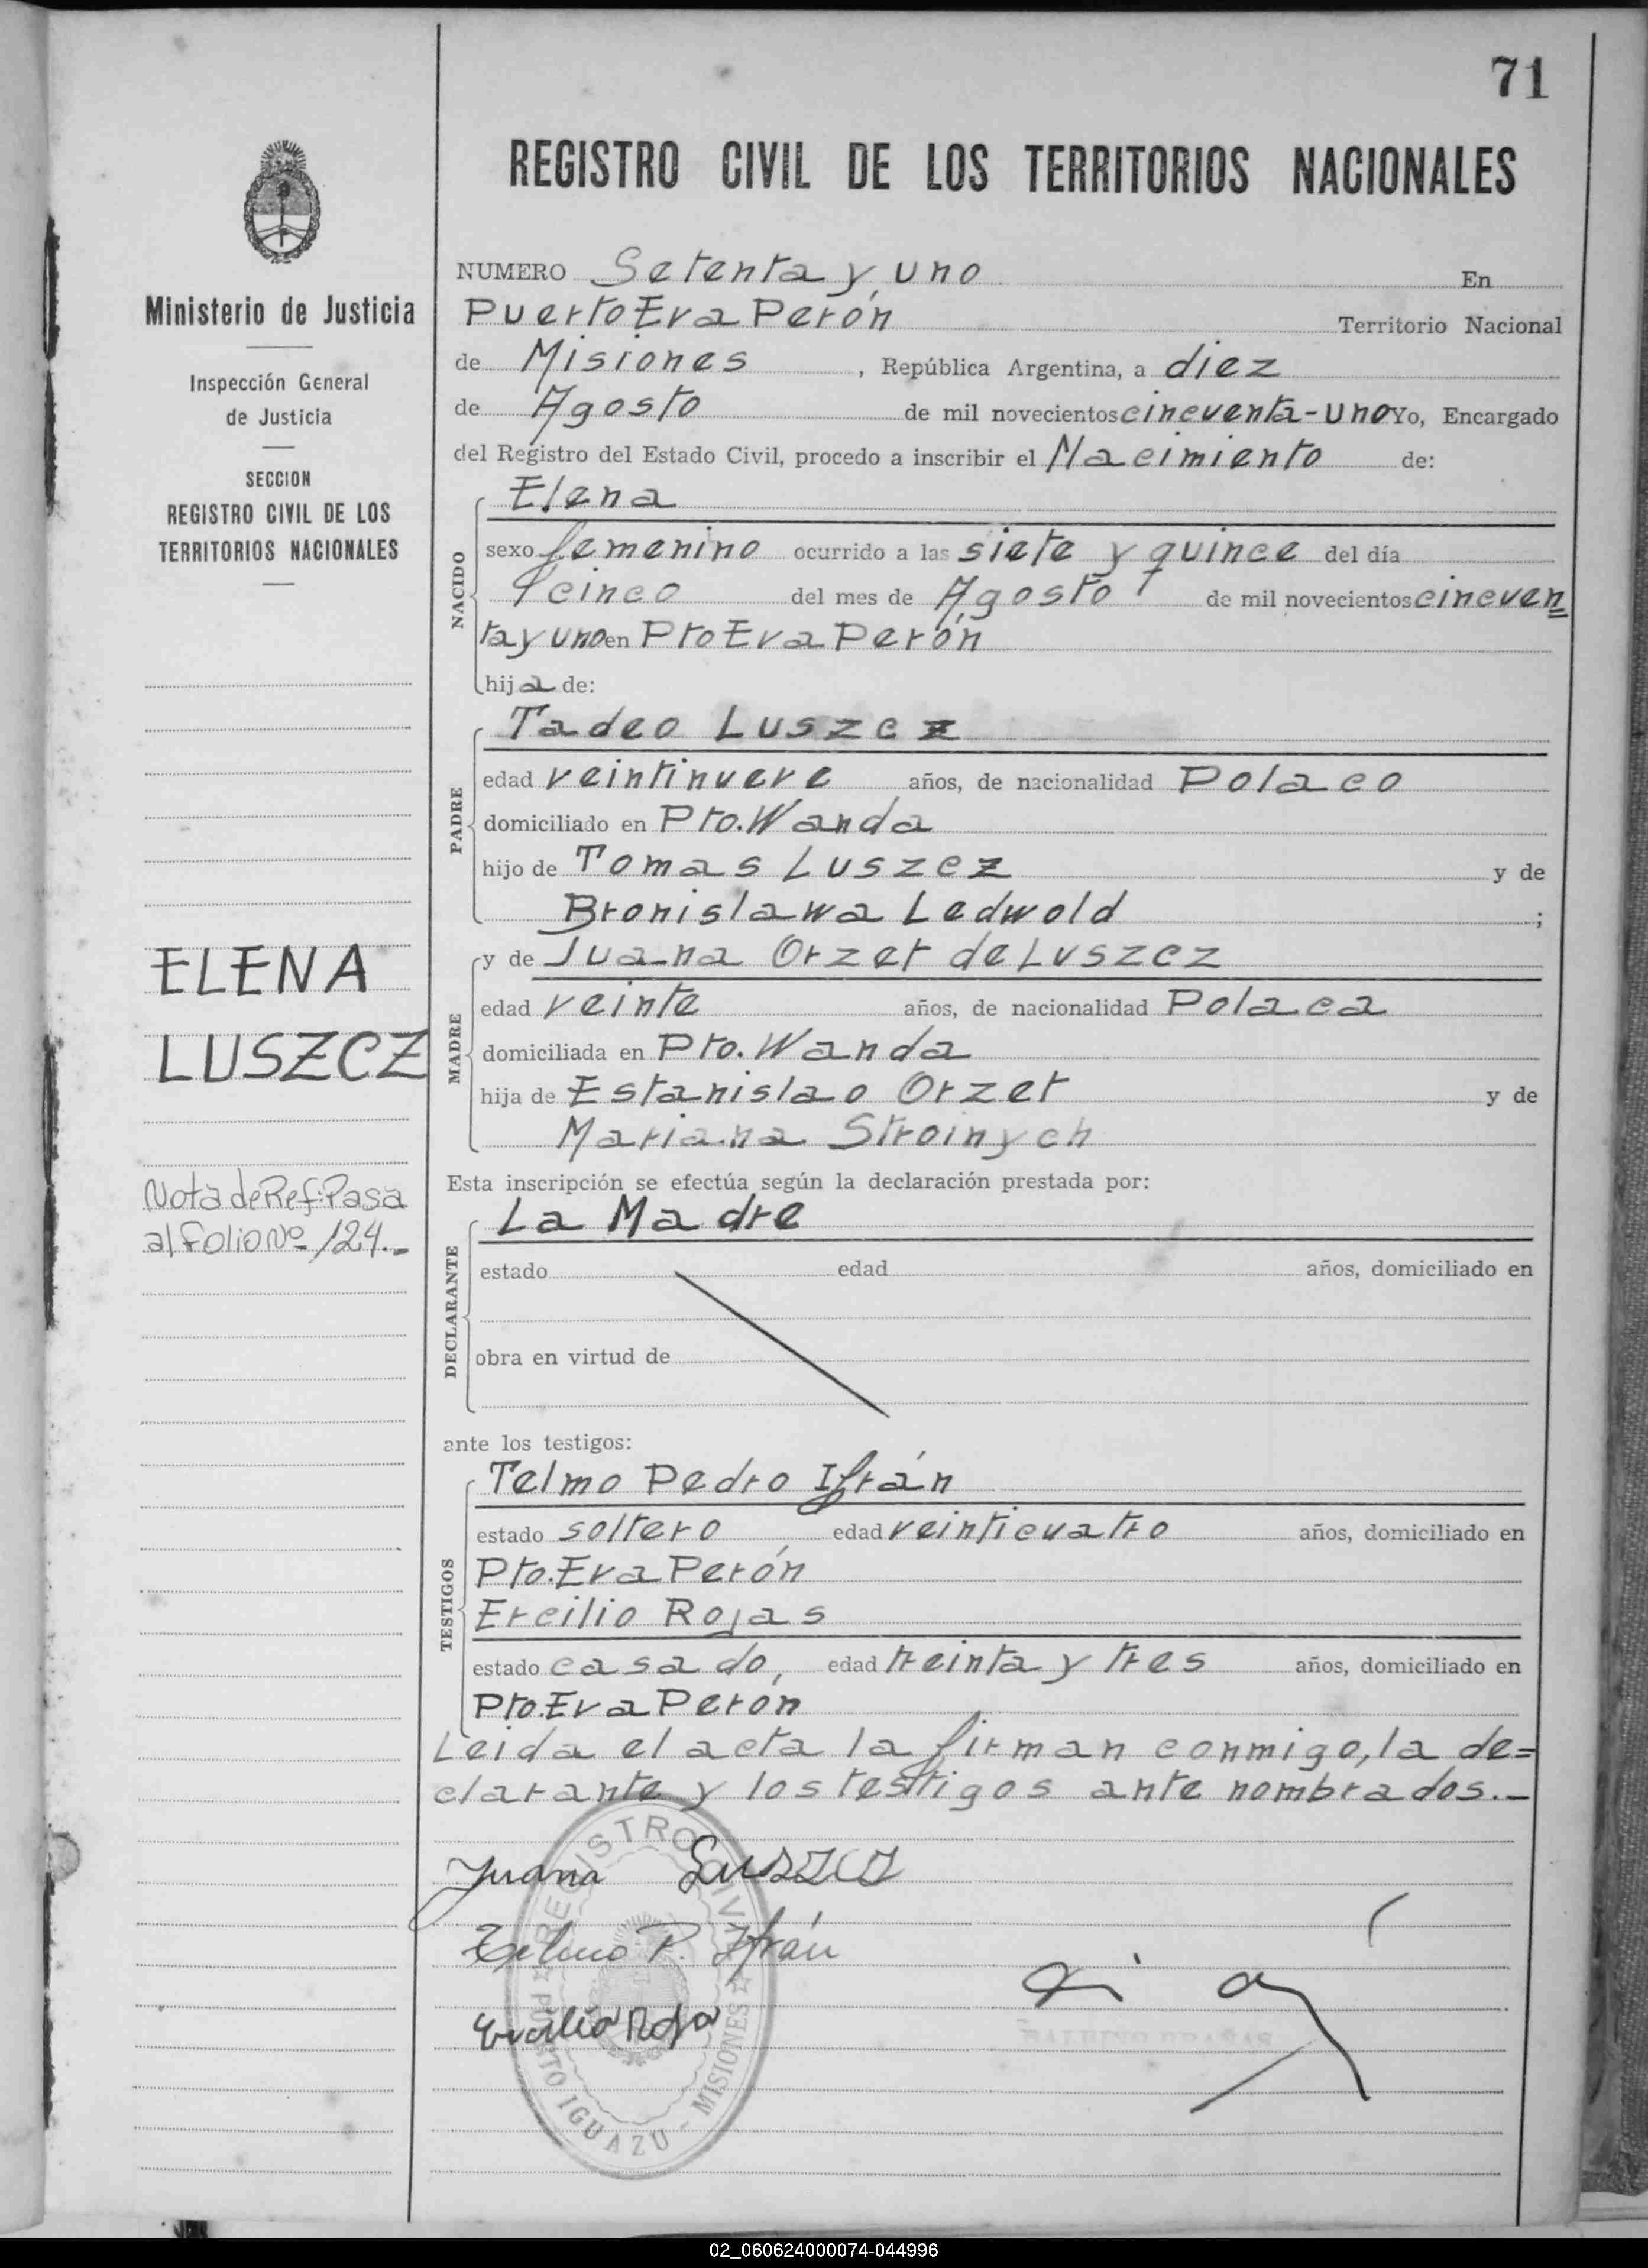 71
REGISTRO CIVIL DE LOS TERRITORIOS NACIONALES
Ministerio de Justicia
Inspección General
de Justicia
SECCION
REGISTRO CIVIL DE LOS
TERRITORIOS NACIONALES
ELENA
LUSZCZ
Nota de Ref: Pasa
al folio Nº 124.-
NUMERO Setenta y uno En
Puerto Eva Perón Territorio Nacional
de Misiones, República Argentina, a diez
de Agosto de mil novecientos cincuenta-uno Yo, Encargado
del Registro del Estado Civil, procedo a inscribir el Nacimiento de:
NACIDO
Elena
sexo femenino ocurrido a las siete y quince del día
cinco del mes de Agosto de mil novecientos cincuen
ta y uno en Pto Eva Perón
hija de:
PADRE
Tadeo Luszcz
edad veintinueve años, de nacionalidad Polaco
domiciliado en Pto. Wanda
hijo de Tomas Luszcz y de
Bronislawa Ledwold ;
MADRE
y de Juana Orzet de Luszcz
edad veinte años, de nacionalidad Polaca
domiciliada en Pto. Wanda
hija de Estanislao Orzet y de
Mariana Stroinych
Esta inscripción se efectúa según la declaración prestada por:
DECLARANTE
La Madre
estado edad años, domiciliado en
obra en virtud de
ante los testigos:
TESTIGOS
Telmo Pedro Ifrán
estado soltero, edad veinticuatro años, domiciliado en
Pto. Eva Perón
Ercilio Rojas
estado casado, edad treinta y tres años, domiciliado en
Pto. Eva Perón
Leida el acta la firman conmigo, la de=
clarante y los testigos ante nombrados.-
Juana Luszcz
Telmo P. Ifrán
Ercilio Roja
REGISTRO CIVIL
PUERTO IGUAZU - MISIONES
02_060624000074-044996